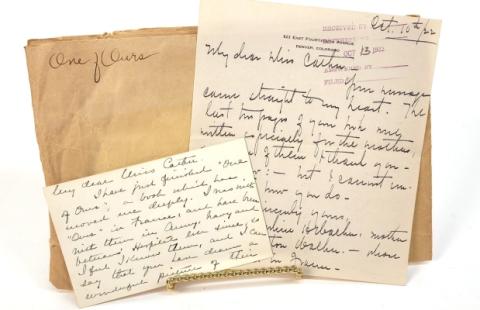 One of Ours
Oct. 10th/22
RECEIVED BY
EAST FOURTEENTH AVENUE
DENVER, COLORADO
OCT 13 1922
BY
FILE
My dear Miss Cather
Your message
came straight to my heart. The
last two pages of your book may
written especially for the mothers,
of them I thank you.
but I cannot
how you do.
Sincerely yours,
mother
in France.
My dear Miss Cather:
I have just finished "One
of Ours", a book which has
moved me deeply. I was with
"Ours" in France, and have been
with them in Army, Navy and
Veterans' Hospitals ever since, so
I feel I know them, and I can
say that you have drawn a
wonderful picture of them